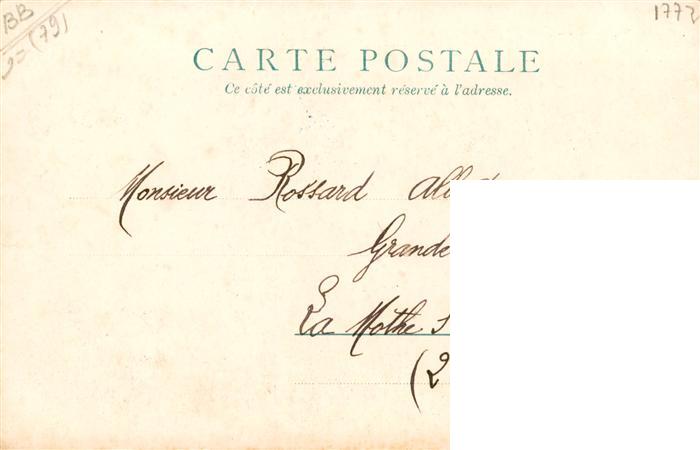 BB
(79)
1772
CARTE POSTALE
Ce côté est exclusivement réservé à l'adresse.
Monsieur Rossard
Grande
La Mothe S
(2